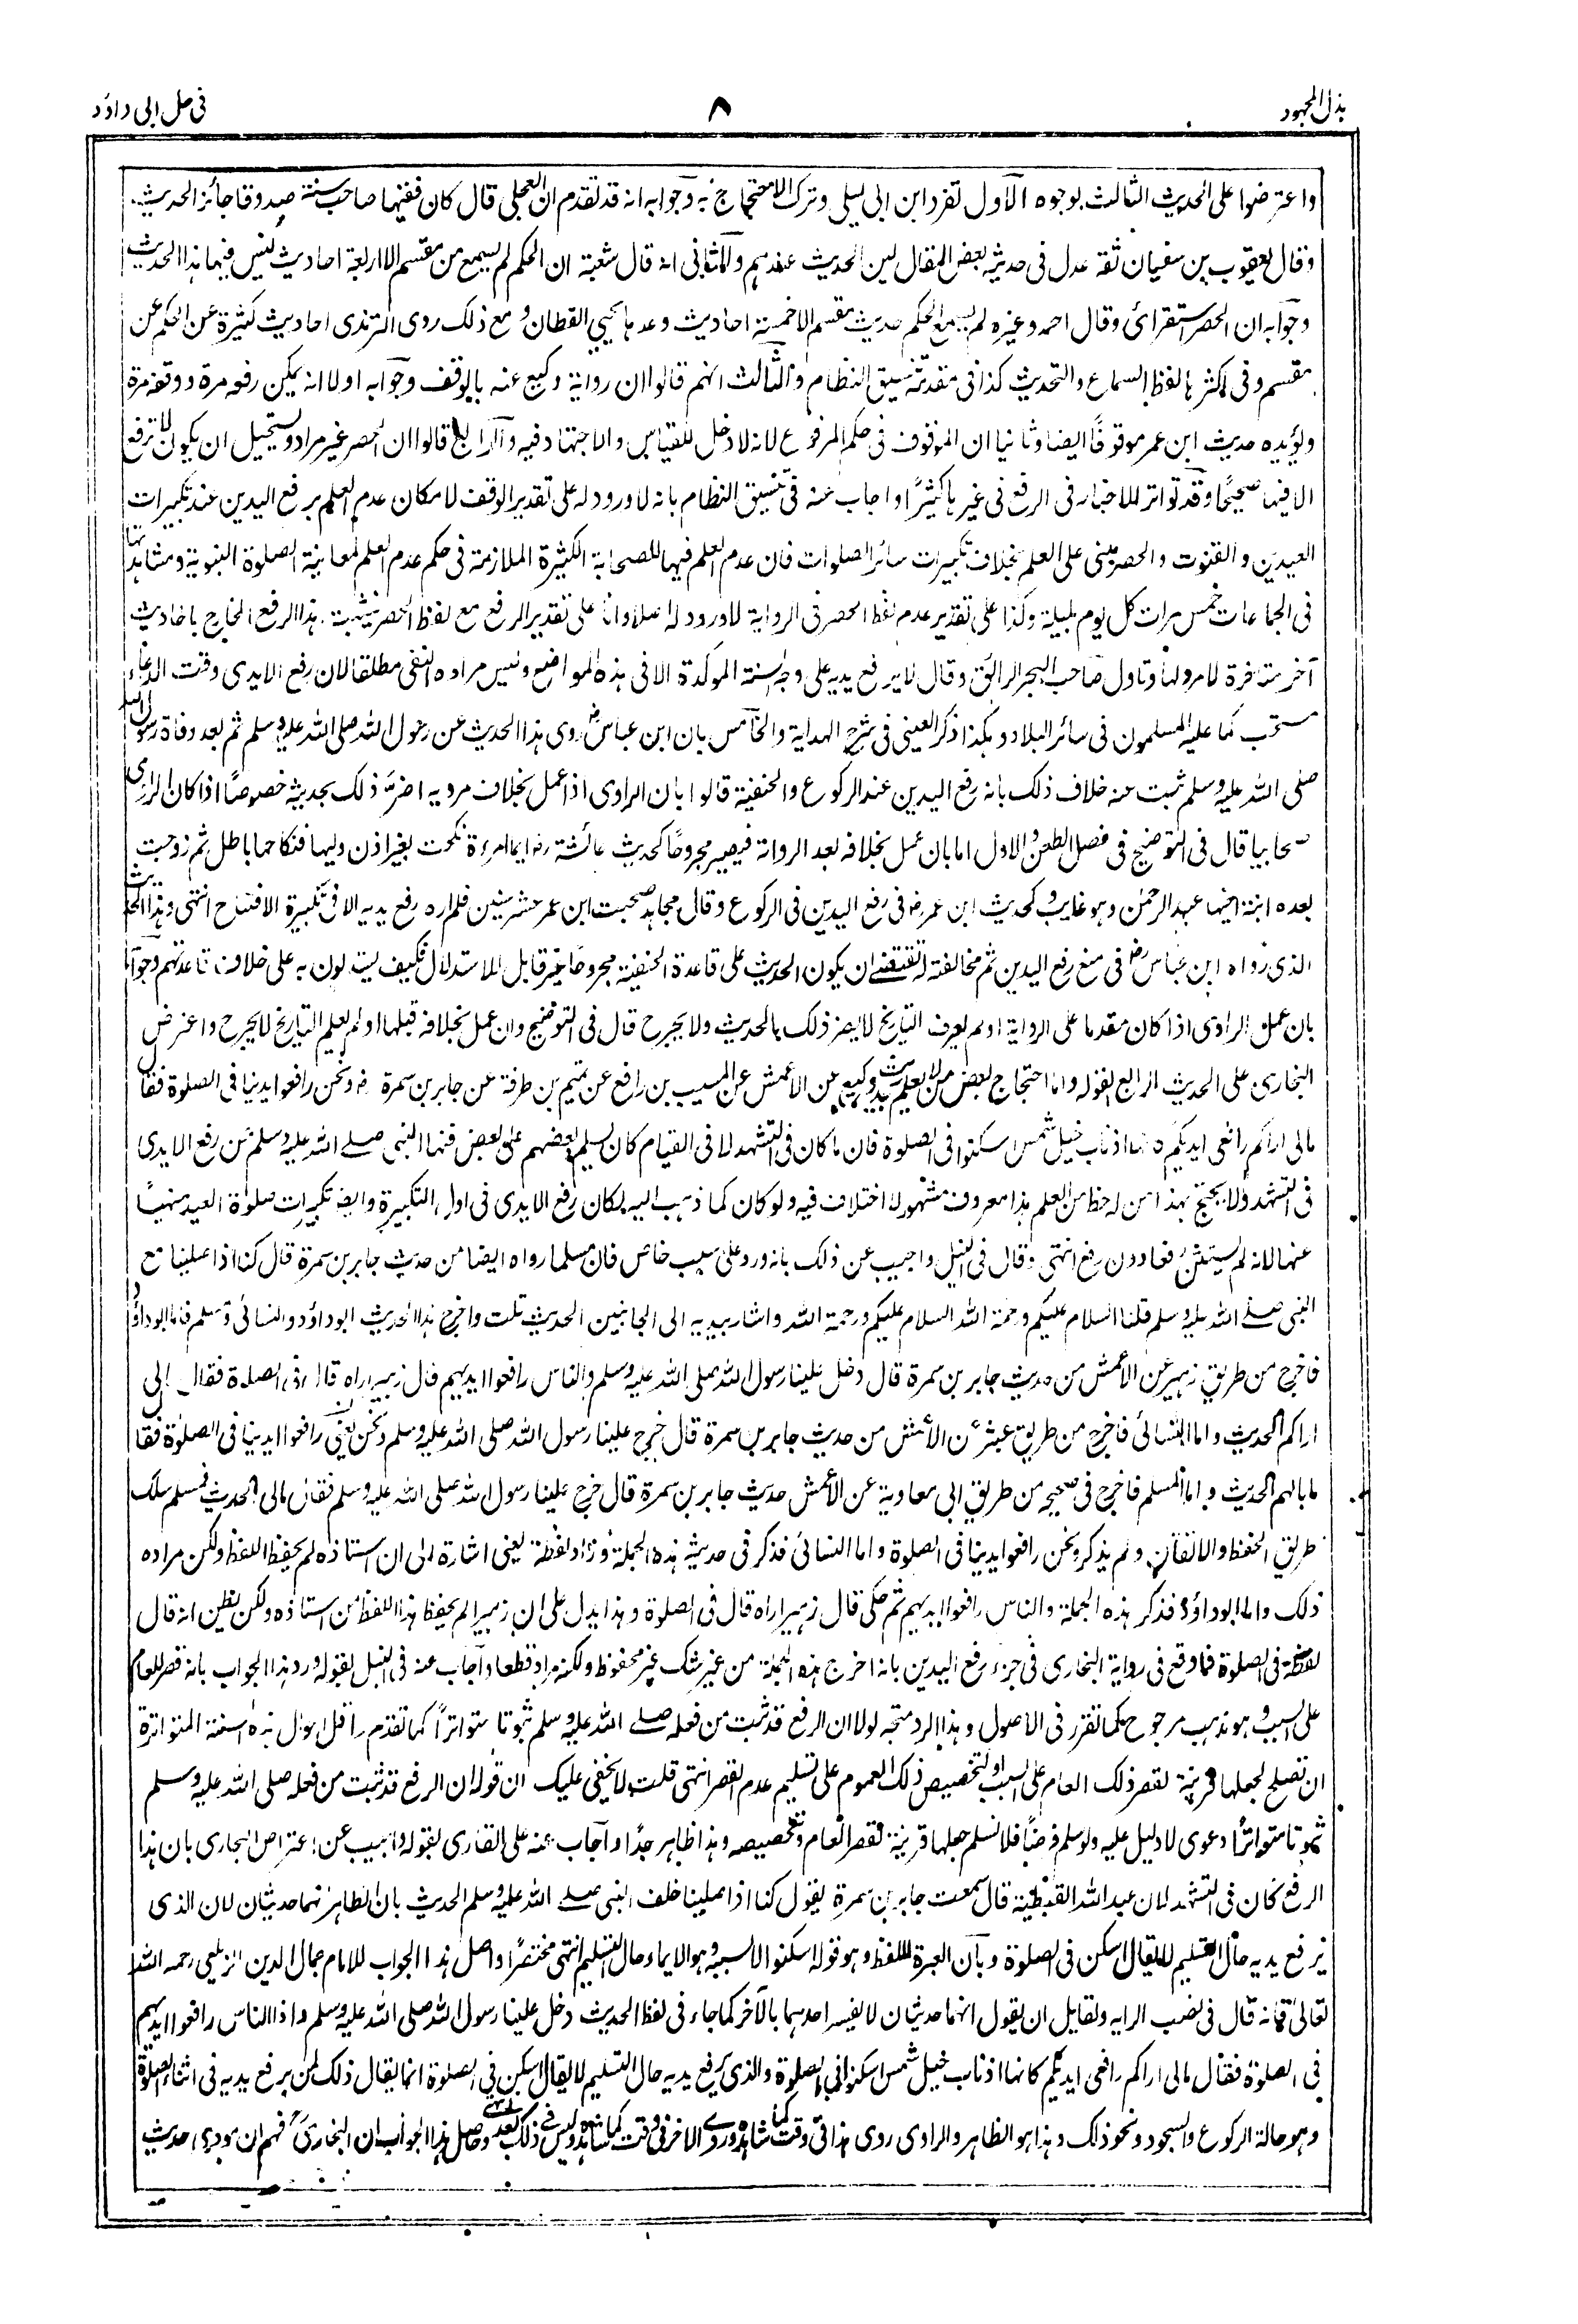 بذل المجهود
٨
فی حل ابی داؤد
واعترضوا علی الحدیث الثالث بوجوه الاول تفرد ابن ابی لیلی وترک الاحتجاج به وجوابه انه قد تقدم ان العجلی قال کان فقیها صاحب سنة صدوقا جائز الحدیث
وقال یعقوب بن سفیان ثقة عدل فی حدیثه بعض المقال لین الحدیث عندهم والثانی انه قال شعبة ان الحکم لم یسمع من مقسم الا اربعة احادیث لیس فیها هذا الحدیث
وجوابه ان الحصر استقرائی وقال احمد وغیره لم یسمع الحکم حدیث مقسم الا خمسة احادیث وعدها یحیی القطان ومع ذلک روی الترمذی احادیث کثیرة عن الحکم عن
مقسم وفی اکثرها لفظ السماع والتحدیث کذا فی مقدمة تنسیق النظام والثالث انهم قالوا ان روایة وکیع عنه بالوقف وجوابه اولا انه یمکن رفعه مرة ووقفه مرة
ویؤیده حدیث ابن عمر موقوفًا ایضا وثانیا ان الموقوف فی حکم المرفوع لانه لا دخل للقیاس والاجتهاد فیه والرابع قالوا ان الحصر غیر مراد ویستحیل ان یکون لا ترفع
الا فیها صحیحًا وقد تواتر الاخبار فی الرفع فی غیرها کثیرًا واجاب عنه فی تنسیق النظام بانه لا ورود له علی تقدیر الوقف لامکان عدم العلم برفع الیدین عند تکبیرات
العیدین والقنوت والحصر مبنی علی العلم بخلاف تکبیرات سائر الصلوات فان عدم العلم فیها للصحابة الکثیرة الملازمة فی حکم عدم العلم لمعاینة الصلوة النبویة ومشاهدتها
فی الجماعات خمس مرات کل یوم ولیلة وکذا علی تقدیر عدم لفظ الحصر فی الروایة لا ورود له اصلا واما علی تقدیر الرفع مع لفظ الحصر یثبت هذا الرفع الخارج باحادیث
آخر متاخرة لا مرد لها وتاول صاحب البحر الرائق وقال لا یرفع یدیه علی وجه السنة الموکدة الا فی هذه المواضع ولیس مراده النفی مطلقا لان رفع الایدی وقت الدعاء
مستحب کما علیه المسلمون فی سائر البلاد وهکذا ذکر العینی فی شرح الهدایة والخامس بان ابن عباسؓ روی هذا الحدیث عن رسول الله صلی الله علیه وسلم ثم بعد وفاة رسول الله
صلی الله علیه وسلم ثبت عنه خلاف ذلک بانه رفع الیدین عند الرکوع والحنفیة قالوا بان الراوی اذا عمل بخلاف مرویه اضر ذلک بحدیثه خصوصًا اذا کان الراوی
صحابیا قال فی التوضیح فی فصل الطعن والاول اما بان عمل بخلافه بعد الروایة فیصیر مجروحًا کحدیث عائشة رض ایما امرءة نکحت بغیر اذن ولیها فنکاحها باطل ثم زوجت
بعده ابنة اخیها عبد الرحمٰن وهو غایب وکحدیث ابن عمر رض فی رفع الیدین فی الرکوع وقال مجاهد صحبت ابن عمر عشر سنین فلم اره رفع یدیه الا فی تکبیرة الافتتاح انتهی وهذا الحدیث
الذی رواه ابن عباسؓ فی منع رفع الیدین ثم مخالفته له تقتضی ان یکون الحدیث علی قاعدة الحنفیة مجروحًا غیر قابل للاستدلال فکیف یستدلون به علی خلاف قاعدتهم وجوابه
بان عمل الراوی اذا کان مقدما علی الروایة او لم یعرف التاریخ لا یضر ذلک بالحدیث ولا یجرح قال فی التوضیح وان عمل بخلافه قبلها او لم یعلم التاریخ لا یجرح واعترض
البخاری علی الحدیث الرابع بقوله واما احتجاج بعض من لا یعلم بحدیث وکیع عن الاعمش عن المسیب بن رافع عن تمیم بن طرفة عن جابر بن سمرة رض ونحن رافعوا ایدینا فی الصلوة فقال
مالی اراکم رافعی ایدیکم کانها اذناب خیل شمس اسکنوا فی الصلوة فان ما کان فی التشهد لا فی القیام کان یسلم بعضهم علی بعض فنها النبی صلے الله علیه وسلم عن رفع الایدی
فی التشهد ولا یحتج بهذا من له حظ من العلم هذا معروف مشهور لا اختلاف فیه ولو کان کما ذهب الیه لکان رفع الایدی فی اول التکبیرة وایضا تکبیرات صلوة العید منهیًا
عنها لانه لم یستثن رفعا دون رفع انتهی وقال فی النیل واجیب عن ذلک بانه ورد علی سبب خاص فان مسلما رواه ایضا من حدیث جابر بن سمرة قال کنا اذا صلینا مع
النبی صلے الله علیه وسلم قلنا السلام علیکم ورحمة الله السلام علیکم ورحمة الله واشار بیدیه الی الجانبین الحدیث قلت واخرج هذا الحدیث ابوداؤد والنسائی ومسلم فاما ابوداؤد
فاخرج من طریق زهیر عن الاعمش من حدیث جابر بن سمرة قال دخل علینا رسول الله صلی الله علیه وسلم والناس رافعوا ایدیهم قال زهیر اراه قال فی الصلوة فقال مالی
اراکم الحدیث واما النسائی فاخرج من طریق عبثر عن الاعمش من حدیث جابر بن سمرة قال خرج علینا رسول الله صلی الله علیه وسلم ونحن یعنی رافعوا ایدینا فی الصلوة فقال
ما بالهم الحدیث واما المسلم فاخرج فی صحیحه من طریق ابی معاویة عن الاعمش حدیث جابر بن سمرة قال خرج علینا رسول الله صلی الله علیه وسلم فقال مالی الحدیث فمسلم سلک
طریق الحفظ والاتقان ولم یذکر ونحن رافعوا ایدینا فی الصلوة واما النسائی فذکر فی حدیثه هذه الجملة وزاد لفظة یعنی اشارة الی ان استاذه لم یحفظ اللفظ ولکن مراده
ذلک واما ابوداؤد فذکر هذه الجملة والناس رافعوا ایدیهم ثم حکی قال زهیر اراه قال فی الصلوة وهذا یدل علی ان زهیرا لم یحفظ هذا اللفظ من استاذه ولکن یظن انه قال
لفظة فی الصلوة فما وقع فی روایة البخاری فی جزء رفع الیدین بانه اخرج هذه الجملة من غیر شک غیر محفوظ ولکنه مراد قطعا واجاب عنه فی النیل بقوله ورد هذا الجواب بانه قصر للعام
علی السبب وهو مذهب مرجوح کما تقرر فی الاصول وهذا الرد متجه لولا ان الرفع قد ثبت من فعله صلے الله علیه وسلم ثبوتا متواترًا کما تقدم واقل احوال هذه السنة المتواترة
ان تصلح لجعلها قرینة لقصر ذلک العام علی السبب او لتخصیص ذلک العموم علی تسلیم عدم القصر انتهی قلت لا یخفی علیک ان قوله ان الرفع قد ثبت من فعله صلی الله علیه وسلم
ثبوتا متواترًا دعوی لا دلیل علیه ولو سلم فرضًا فلا نسلم جعلها قرینة لقصر العام وتخصیصه وهذا ظاهر جدًا واجاب عنه علی القاری بقوله واجیب عن اعتراض البخاری بان هذا
الرفع کان فی التشهد لان عبد الله القبطیة قال سمعت جابر بن سمرة یقول کنا اذا صلینا خلف النبی صلے الله علیه وسلم الحدیث بان الظاهر انهما حدیثان لان الذی
یرفع یدیه حال التسلیم لا یقال له اسکن فی الصلوة وبان العبرة للفظ وهو قوله اسکنوا لا لسببه وهو الایماء حال التسلیم انتهی مختصرًا واصل هذا الجواب للامام جمال الدین الزیلعی رحمه الله
تعالی فانه قال فی نصب الرایه ولقایل ان یقول انهما حدیثان لا یفسر احدهما بالآخر کما جاء فی لفظ الحدیث دخل علینا رسول الله صلی الله علیه وسلم واذا الناس رافعوا ایدیهم
فی الصلوة فقال مالی اراکم رافعی ایدیکم کانها اذناب خیل شمس اسکنوا فی الصلوة والذی یرفع یدیه حال التسلیم لا یقال له اسکن فی الصلوة انما یقال ذلک لمن یرفع یدیه فی اثناء الصلوة
وهو حالة الرکوع والسجود ونحو ذلک وهذا هو الظاهر والراوی روی هذا فی وقت کما شاهده وروی الاخر فی وقت کما شاهده ولیس فی ذلک بعد انتهی وحاصل هذا الجواب ان البخاریؒ فهم ان مودی حدیث